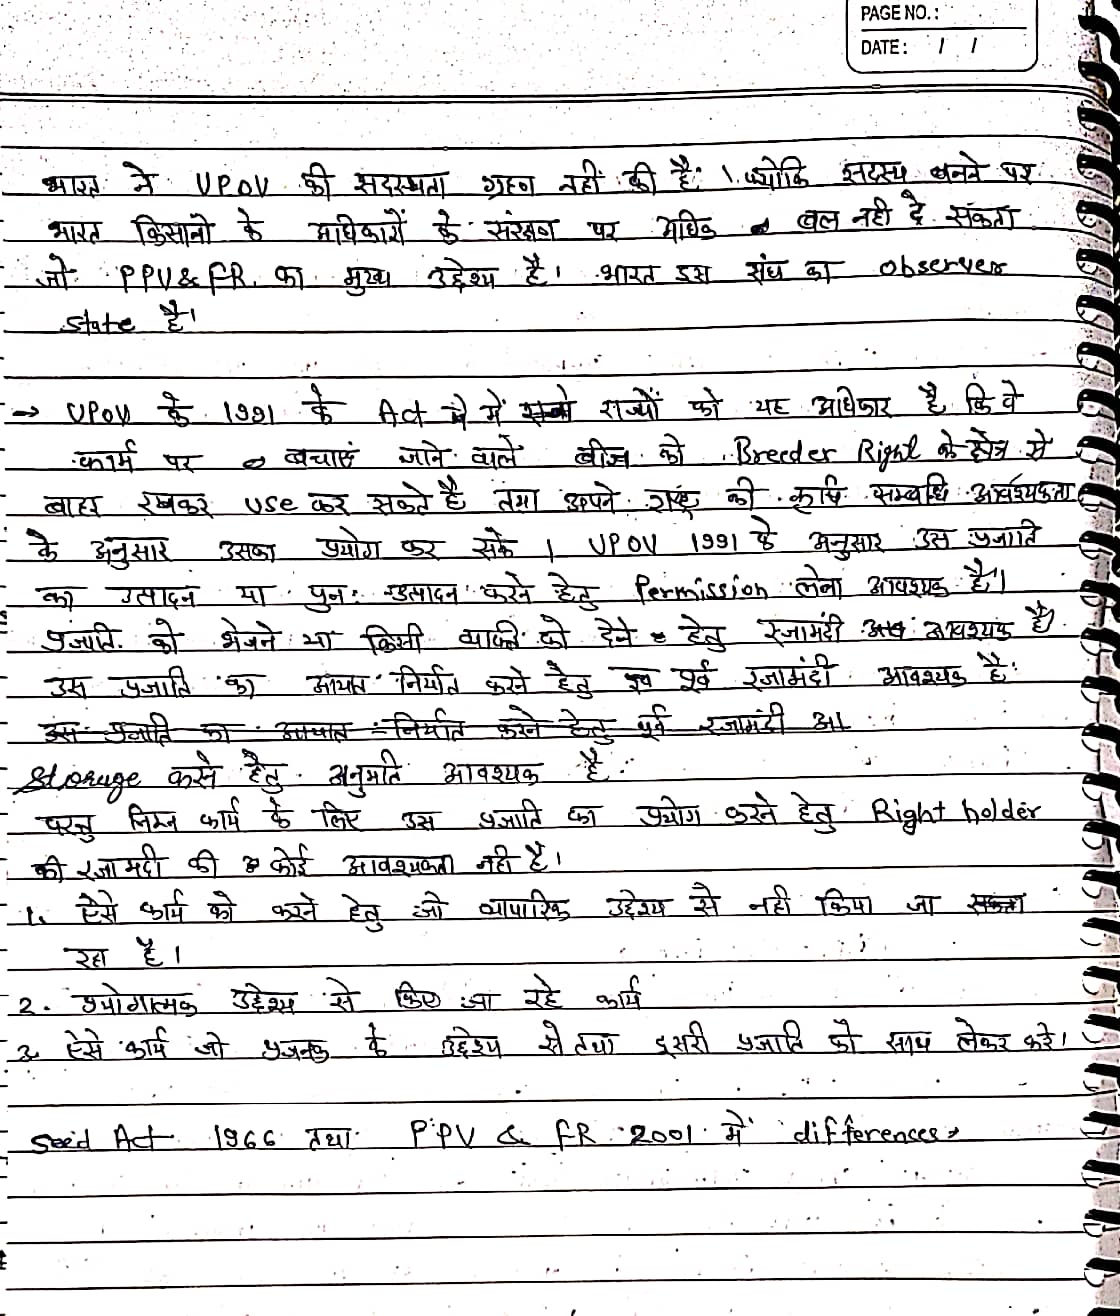 PAGE NO.:
DATE: / /
भारत ने UPOV की सदस्यता ग्रहण नहीं की है। क्योकि सदस्य बनने पर
भारत किसानो के अधिकारों के संरक्षण पर अधिक बल नही दे सकता
जो PPV&FR. का मुख्य उद्देश्य है। भारत इस संघ का observer
state है।
→ UPOV के 1991 के Act में राज्यों को यह अधिकार है कि वे
फार्म पर बचाएं जाने वाले बीज को Breeder Right के क्षेत्र से
बाहर रखकर use कर सकते है तथा अपने राष्ट्र की कृषि सम्बधि आवश्यकता
के अनुसार उसका प्रयोग कर सके। UPOV 1991 के अनुसार उस प्रजाति
का उत्पादन या पुनः उत्पादन करने हेतु Permission लेना आवश्यक है।
प्रजाति को भेजने या किसी व्यक्ति को देने हेतु रजामंदी आवश्यक है
उस प्रजाति का आयात निर्यात करने हेतु पूर्व रजामंदी आवश्यक है
उस प्रजाति का आयात निर्यात करने हेतु पूर्व रजामंदी आ
Storage करने हेतु अनुमति आवश्यक है
परन्तु निम्न कार्य के लिए उस प्रजाति का प्रयोग करने हेतु Right holder
की रजामदी की कोई आवश्यकता नही है।
1. ऐसे कार्य को करने हेतु जो व्यापारिक उद्देश्य से नही किया जा सकता
रहा है।
2. प्रयोगात्मक उद्देश्य से किए जा रहे कार्य
3. ऐसे कार्य जो प्रजनक के उद्देश्य से तथा दूसरी प्रजाति को साथ लेकर करे।
Seed Act 1966 तथा PPV & FR 2001 में differences